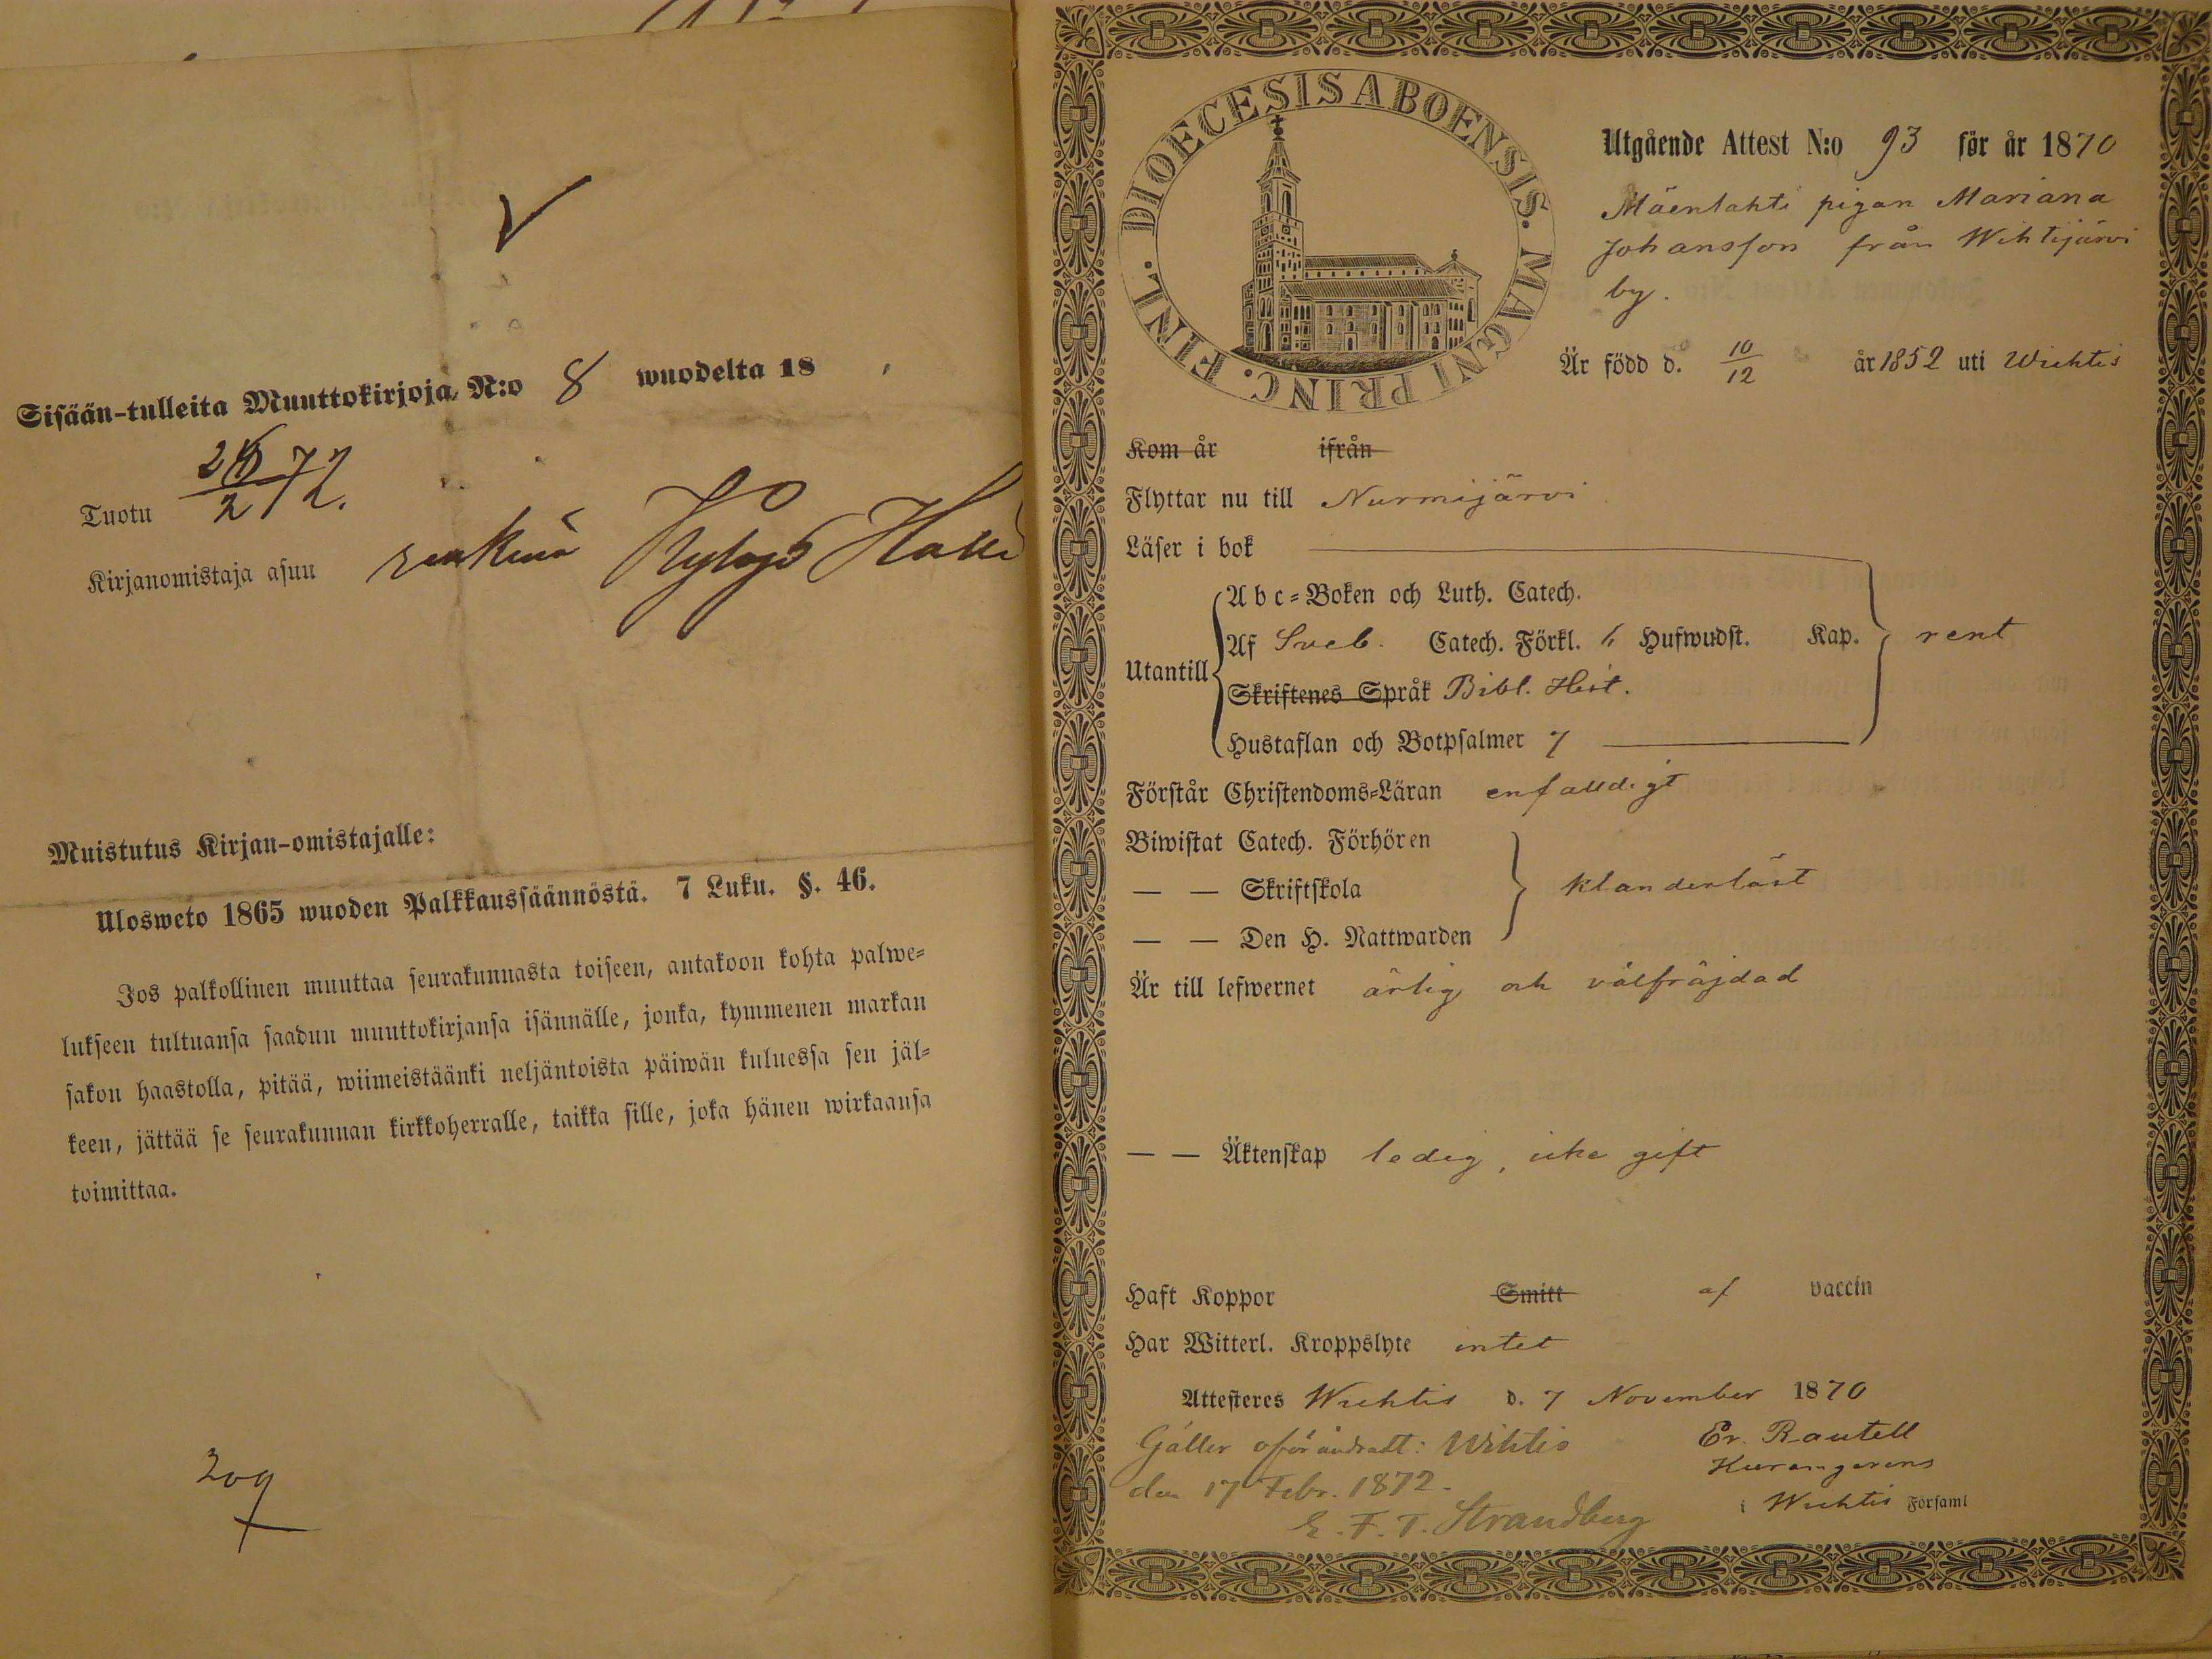 Sisään-tulleita Muuttokirjoja, N:o 8 wuodelta 18
Tuotu 2/72.
Kirjanomistaja asuu
Muistutus Kirjan-omistajalle:
Ulosweto 1865 wuoden Palkkaussäännöstä. 7 Luku. §. 46.
Jos palkollinen muuttaa seurakunnasta toiseen, antakoon kohta palwe=
lukseen tultuansa saadun muuttokirjansa isännälle, jonka, kymmenen markan
sakon haastolla, pitää, wiimeistäänki neljäntoista päiwän kuluessa sen jäl=
keen, jättää se seurakunnan kirkkoherralle, taikka sille, joka hänen wirkaansa
toimittaa.
209
DIOECESIS ABOENSIS. MAGNI PRINC. FINL.
Utgående Attest N:o 93 för år 1870
Mäenlahti pigan Mariana
Johansson från Wihtijärvi
by.
Är född d. 10/12 år 1852 uti Wichtis
Kom år ifrån
Flyttar nu till Nurmijärvi
Läser i bok
Utantill
Abc=Boken och Luth. Catech.
Af Sveb. Catech. Förkl. Hufwudst. Kap.
Skriftenes Språk Bibl. Hist.
Hustaflan och Botpsalmer 7
rent
Förstår Christendoms=Läran enfalldigt
Biwistat Catech. Förhören
— — Skriftskola
— — Den H. Nattwarden
klanderlöst
Är till lefwernet ärlig och välfräjdad
— — Äktenskap ledig, icke gift
Haft Koppor Smitt af vaccin
Har Witterl. Kroppslyte intet
Attesteres Wichtis d. 7 November 1870
Gäller oförändradt: Wihtis
den 17 Febr. 1872.
E. F. T. Strandberg
Er. Rautell
i Wichtis Församl